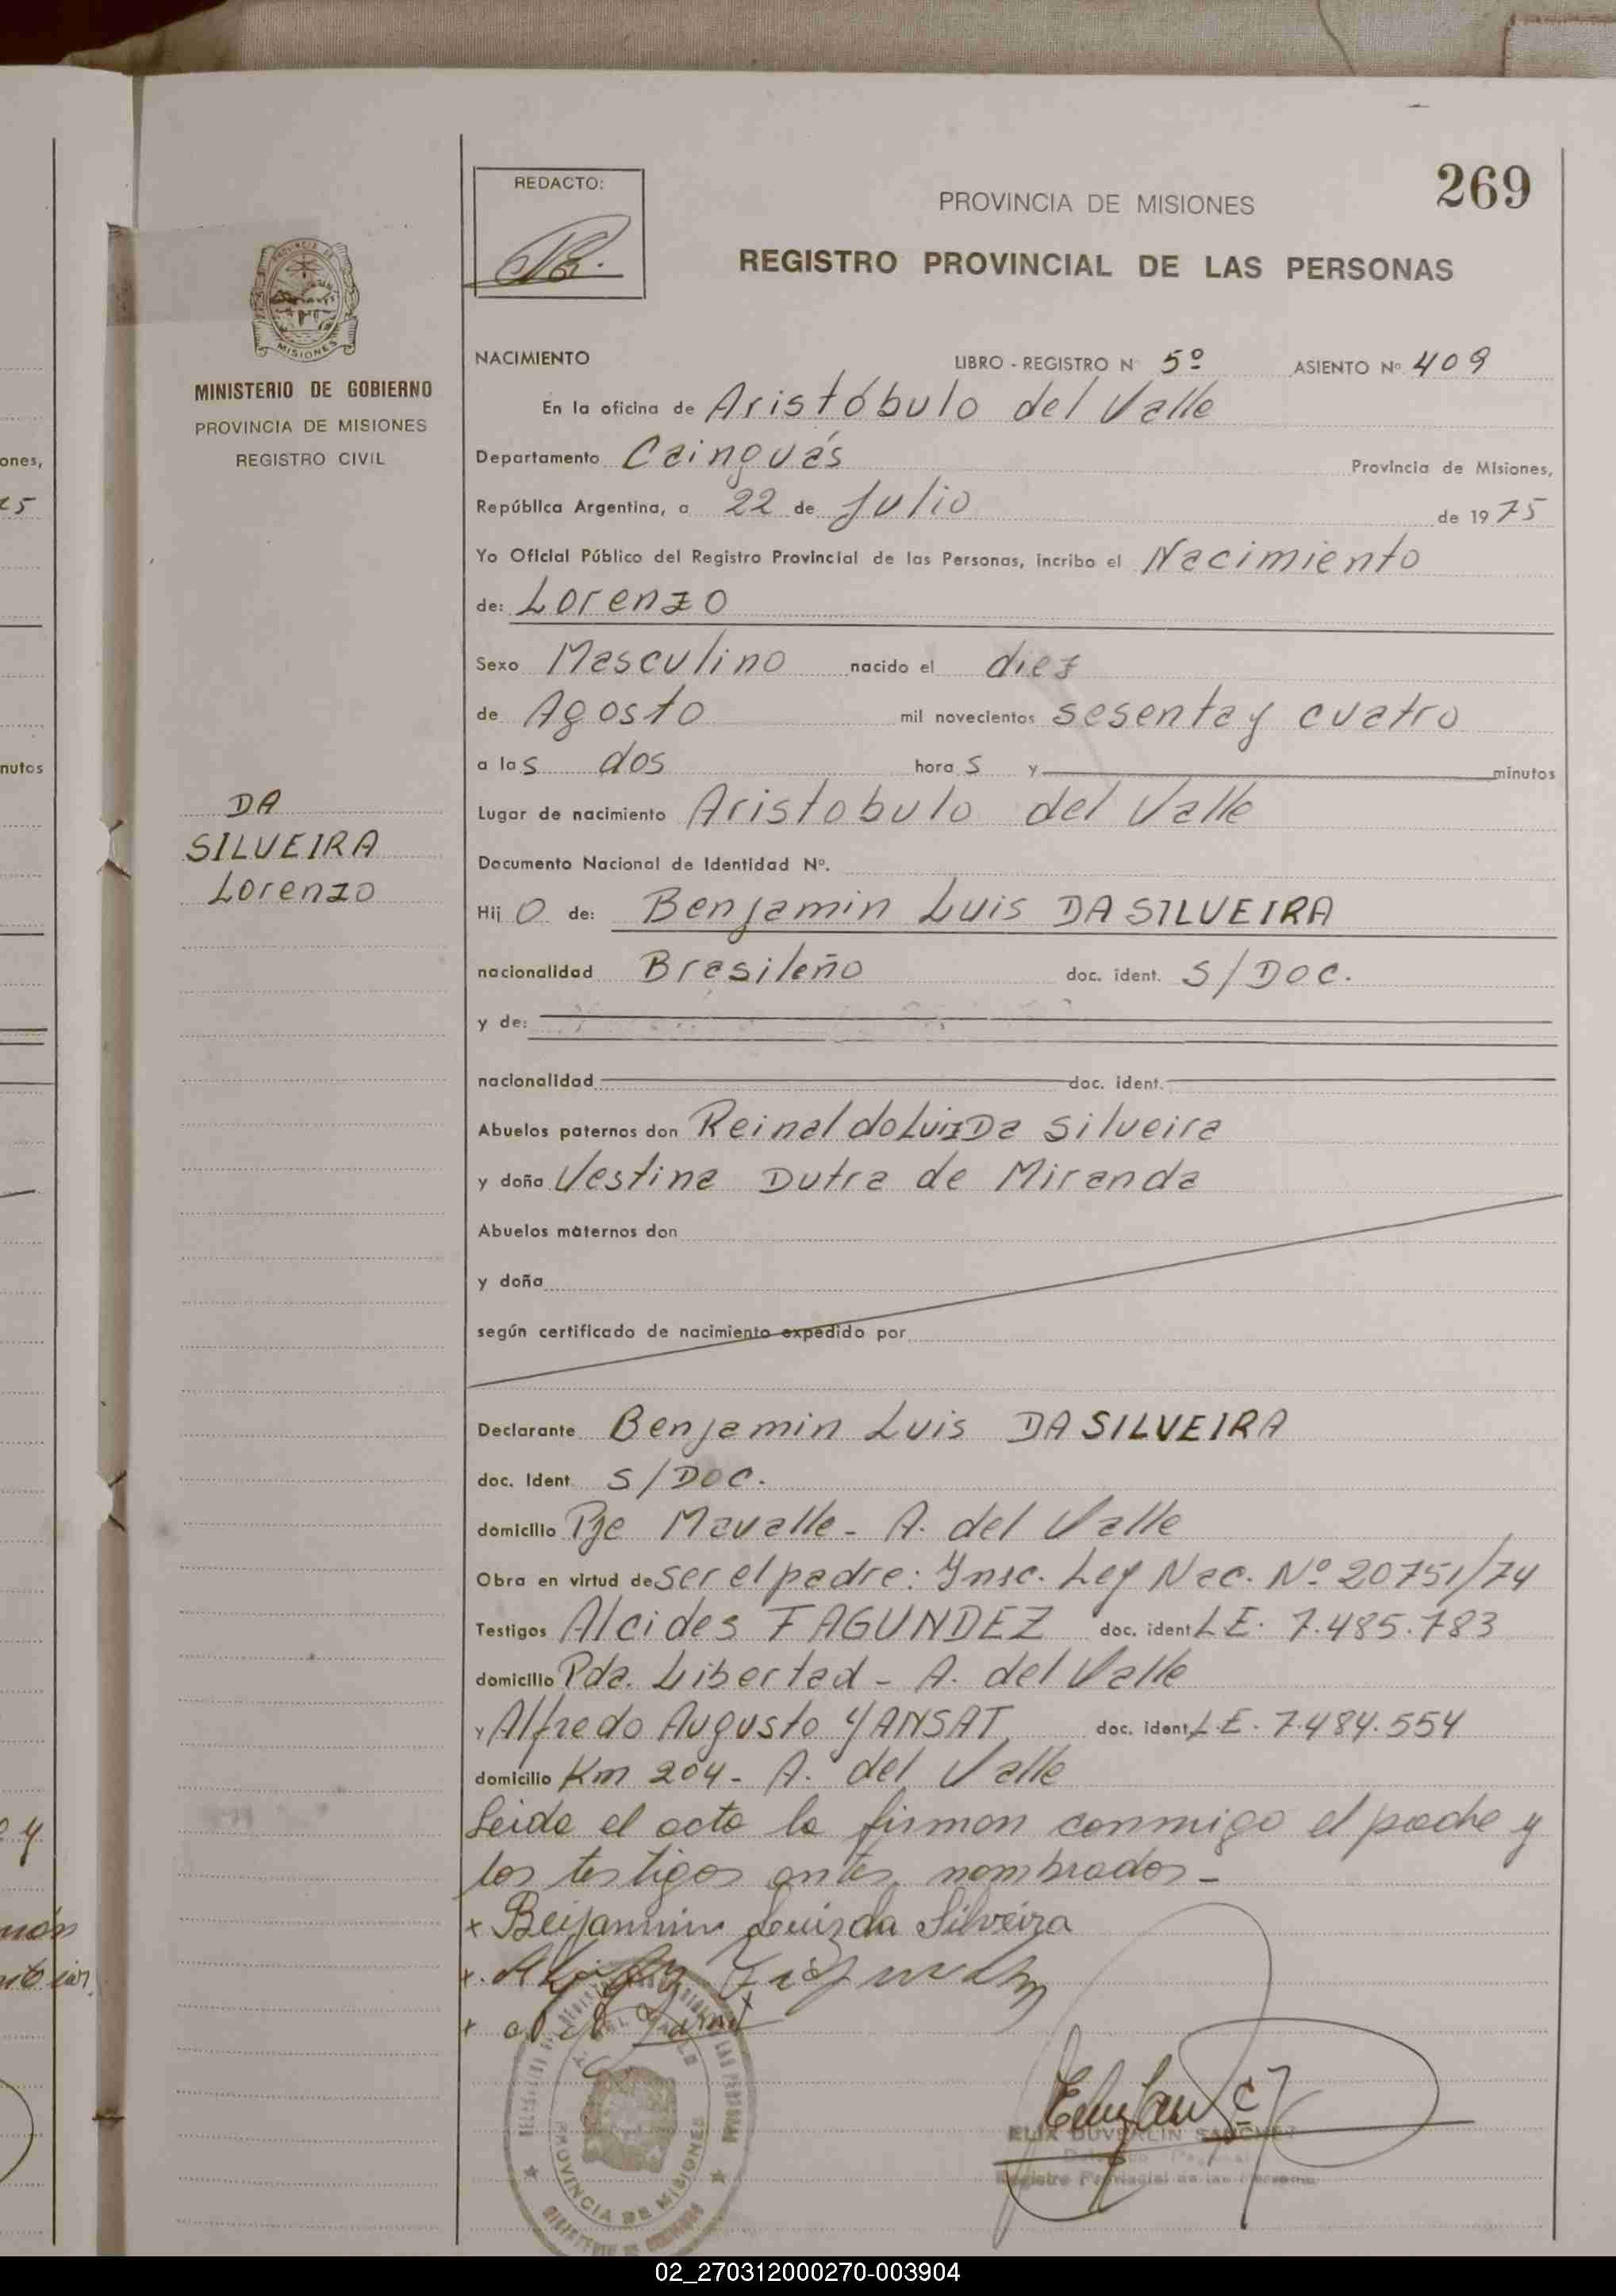 269
REDACTO:
PROVINCIA DE MISIONES
REGISTRO PROVINCIAL DE LAS PERSONAS
MISIONES
MINISTERIO DE GOBIERNO
PROVINCIA DE MISIONES
REGISTRO CIVIL
DA
SILVEIRA
Lorenzo
NACIMIENTO LIBRO - REGISTRO N 5º ASIENTO Nº 409
En la oficina de Aristóbulo del Valle
Departamento Cainguás Provincia de Misiones,
República Argentina, a 22 de Julio de 1975
Yo Oficial Público del Registro Provincial de las Personas, incribo el Nacimiento
de: Lorenzo
Sexo Masculino nacido el diez
de Agosto mil novecientos sesenta y cuatro
a las dos horas y minutos
Lugar de nacimiento Aristobulo del Valle
Documento Nacional de Identidad Nº.
Hijo de: Benjamin Luis DA SILVEIRA
nacionalidad Brasileño doc. ident. S/DOC.
y de:
nacionalidad doc. ident.
Abuelos paternos don Reinaldo Luiz Da Silveira
y doña Vestina Dutra de Miranda
Abuelos maternos don
y doña
según certificado de nacimiento expedido por
Declarante Benjamin Luis DA SILVEIRA
doc. Ident. S/DOC.
domicilio Pje Mavalle - A. del Valle
Obra en virtud de ser el padre: Ynsc. Ley Nac. Nº 20751/74
Testigos Alcides FAGUNDEZ doc. ident L E. 7.485.783
domicilio Pda. Libertad - A. del Valle
y Alfredo Augusto YANSAT doc. ident L.E. 7.484.554
domicilio Km 204 - A. del Valle
Leida el acta la firman conmigo el padre y
los testigos antes nombrados -
x Beijammin Luiz da Silveira
PROVINCIA DE MISIONES
ELIX DUVSALIN SANCHEZ
Registro Provincial de las Personas
ones,
nutos
02_270312000270-003904